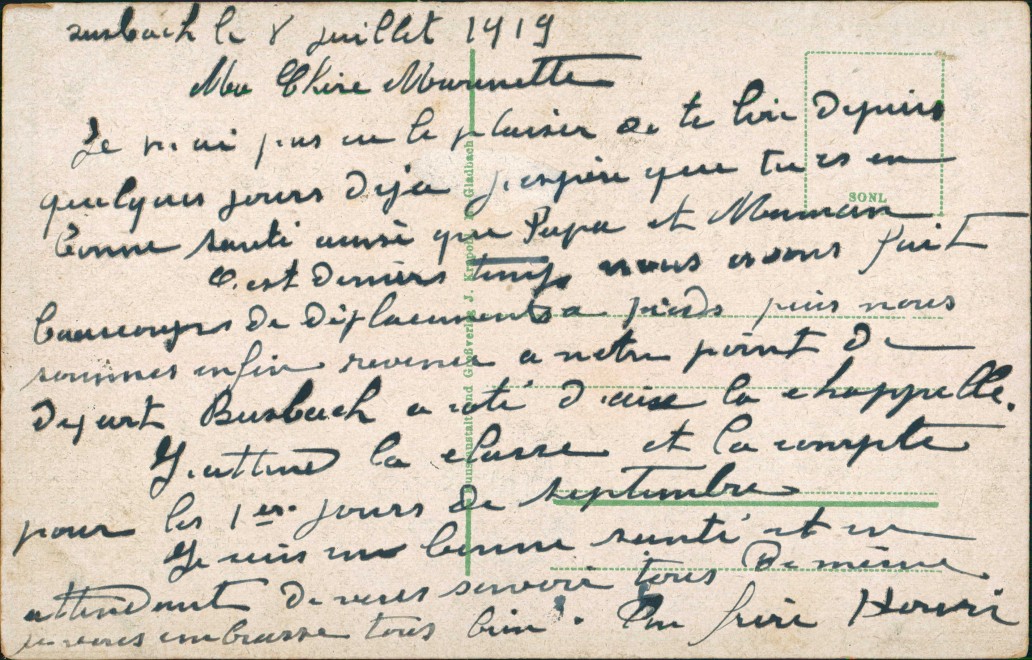 Busbach le 8 juillet 1919
Ma Chère Marinette
Je n'ai pas eu le plaisir de te lire Depuis
quelques jours Déja j'espère que tu es en
bonne santé ainsi que Papa et Maman
C'est Derniers temps nous avons fait
beaucoups De Déplacements a pieds puis nous
sommes enfin revenu a notre point De
Depart Busbach a coté D'aix la chappelle.
J'attend la classe et la compte
pour les 1er jours De septembre
Je suis en bonne santé et en
attendant De vous savoir tous De même
je vous embrasse tous bien. Ton frère Henri
SONL
Kunstanstalt und Großverlag J. Krapohl M. Gladbach